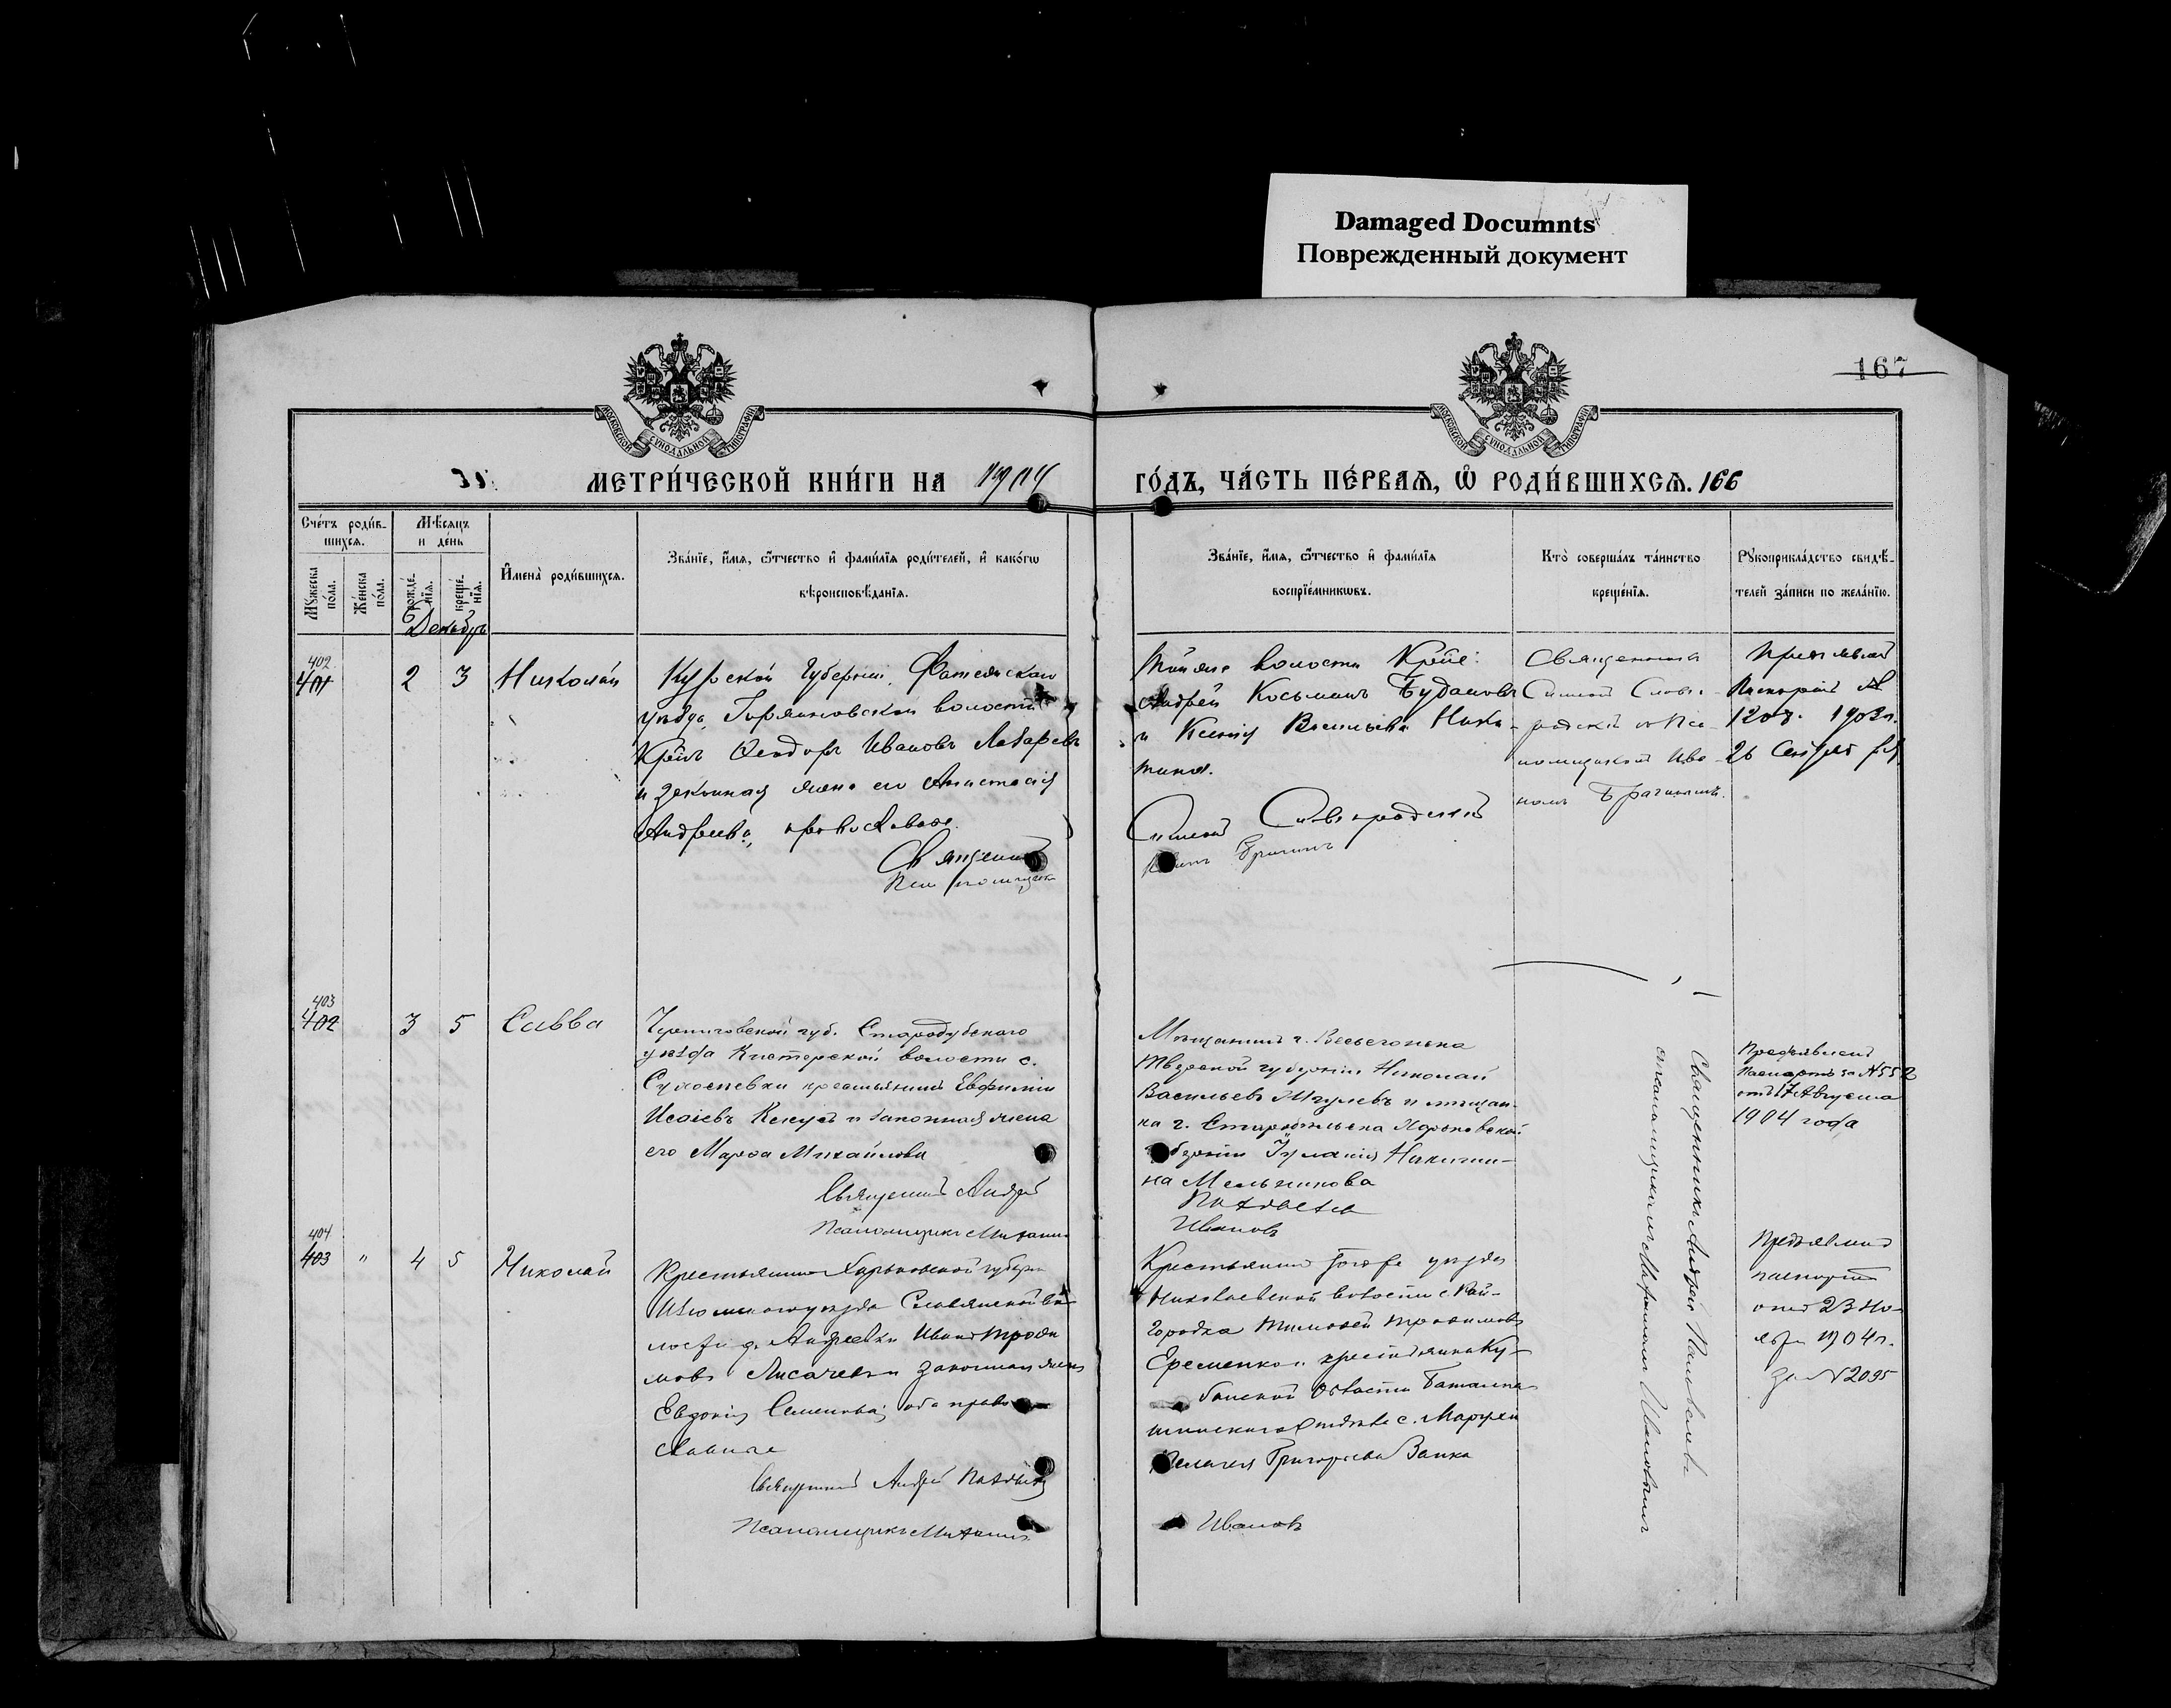 Damaged Documnts
Поврежденный документ
167
МОСКОВСКОЙ СѴНОДАЛЬНОЙ ТИПОГРАФІИ
МОСКОВСКОЙ СѴНОДАЛЬНОЙ ТИПОГРАФІИ
МЕТРИ́ЧЕСКОЙ КНИ́ГИ НА 1904
ГО́ДЪ, ЧА́СТЬ ПЕ́РВАѦ, Ѡ҆ РОДИ́ВШИХСѦ. 166
Сче́тъ роди́в-
шихсѧ.
Му́жеска
по́ла.
Же́нска
по́ла.
Мѣ́сѧцъ
и де́нь
рожде́-
нїѧ.
креще́-
нїѧ.
Декабрь
И҆мена̀ роди́вшихсѧ.
Зва́нїе, и҆́мѧ, ѻ҆́тчество и҆ фами́лїѧ роди́телей, и҆ како́гѡ
вѣроисповѣ́данїѧ.
Зва́нїе, и҆́мѧ, ѻ҆́тчество и҆ фами́лїѧ
воспрїе́мникѡвъ.
Кто̀ соверша́лъ та́инство
креще́нїѧ.
Рꙋкоприкла́дство свидѣ́-
телей за́писи по жела́нїю.
402
401
2
3
Николай
Курской Губерніи, Фатежскаго
уѣзда, волости
Кр-нъ Ѳеодоръ Ивановъ Лазаревъ
и законная жена его Анастасія
Андреева, православные.
Священникъ
Псаломщикъ
волости Кр-не:
Андрей Косьминъ Будановъ
и Ксенія Васильева Ники-
тина.
Симеонъ
Иванъ
Священникъ
Симеонъ
съ Пса-
ломщикомъ Ива-
номъ
Паспортъ №
1208. 1903г.
26 Сентября
403
402
3
5
Савва
Черниговской губ. Стародубскаго
уѣзда Кистерской волости с.
крестьянинъ Евфимій
Исаіевъ и законная жена
его Марѳа Михайлова
Священникъ Андрей
Псаломщикъ Митрофанъ
Мѣщанинъ г. Весьегонска
Тверской губерніи Николай
Васильевъ и мѣщан-
ка г. Старобѣльска Харьковской
губерніи Никити-
на Мельникова
Ивановъ
Священникъ Андрей
съ псаломщикомъ Митрофаномъ Ивановымъ
Предъявленъ
Паспортъ за №552
отъ 17 Августа
1904 года
404
403
"
4
5
Николай
Крестьянинъ Харьковской губерніи
Изюмскаго уѣзда Славянской во-
лости д. Андреевки Иванъ Трофи
мовъ Лисачевъ и законная жена
Евдокія Семенова, оба право
славные
Священникъ Андрей
Псаломщикъ Митрофанъ
Крестьянинъ того же уѣзда
Николаевской волости с. Рай-
городка Тимофей Трофимовъ
Еременко и крестьянка Ку-
банской области Баталпа-
шинскаго Отдѣла с.
Пелагея Григорьева Заика
Ивановъ
Предъявленъ
паспортъ
отъ 23 Но-
ября 1904г.
за №2095